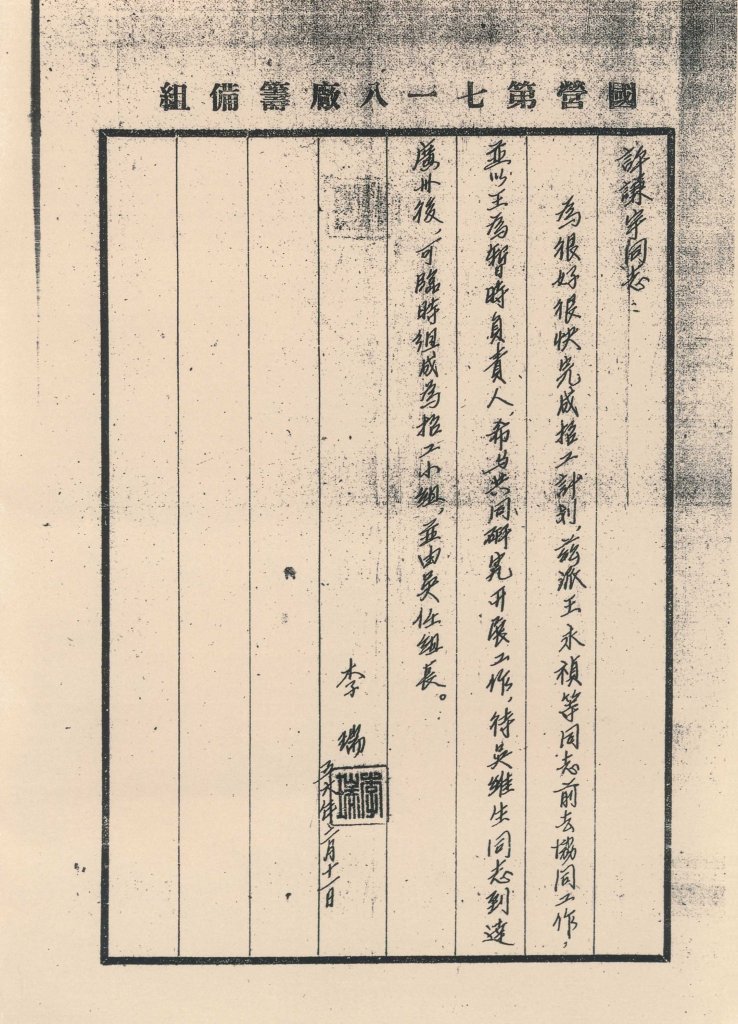 國營第七一八廠籌備組
許謙宇同志：
為很好很快完成招工計划，茲派王永禎等同志前去協同工作，
並以王為暫時負責人，希与共同研究开展工作，待吳維生同志到達
廣州後，可臨時組成為招工小組，並由吳任組長。
李瑞
李瑞
年二月十一日